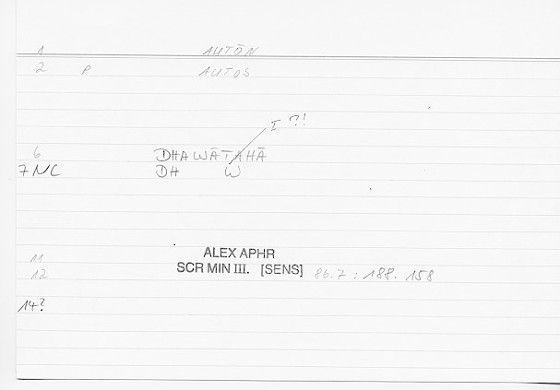 1 AUTŌN
2 P AUTOS
I ?!
6 DHAWĀTAHĀ
7 NC DH W
ALEX APHR
11 SCR MIN III. [SENS]
12 86.7 : 188. 158
14?